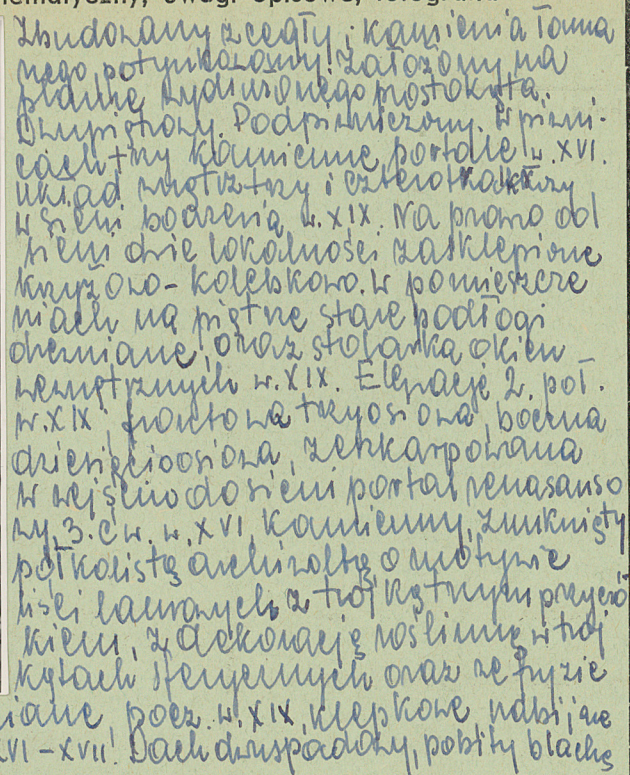 Zbudowany z cegły i kamienia łama
nego, potynkowany. Założony na
planie wydłużonego prostokąta.
Dwupiętrowy. Podpiwniczony. W piwni-
cach trzy kamienne portale w. XVI.
układ wnętrz trzy i czterotraktowy
w sieni boazeria w. XIX. Na prawo od
sieni dwie lokalności zasklepione
krzyżowo-kolebkowo. W pomieszcze
niach na piętrze stare podłogi
drewniane, oraz stolarka okien
wewnętrznych w. XIX. Elewacje 2. poł.
w. XIX, frontowa trzyosiowa, boczna
dziesięcioosiowa, zeszkarpowana
w wejściu do sieni portal renesanso
wy, 3. ćw. w. XVI, kamienny, zamknięty
półkolistą archiwoltą o motywie
liści laurowych z trójkątnym przyczół
kiem, z dekoracją roślinną w trój
kątach sferycznych oraz we fryzie
iane, pocz. w. XIX, klepkowe nabijane
XVI-XVII. Dach dwuspadowy, pobity blachą